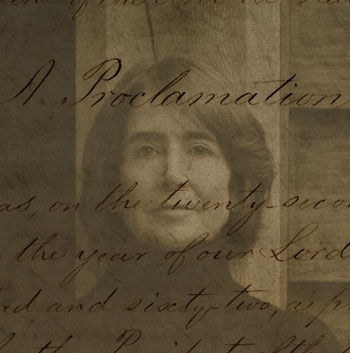 A Proclamation
as, on the twenty-secon
the year of our Lord
d and sixty-two, a p
the President of th